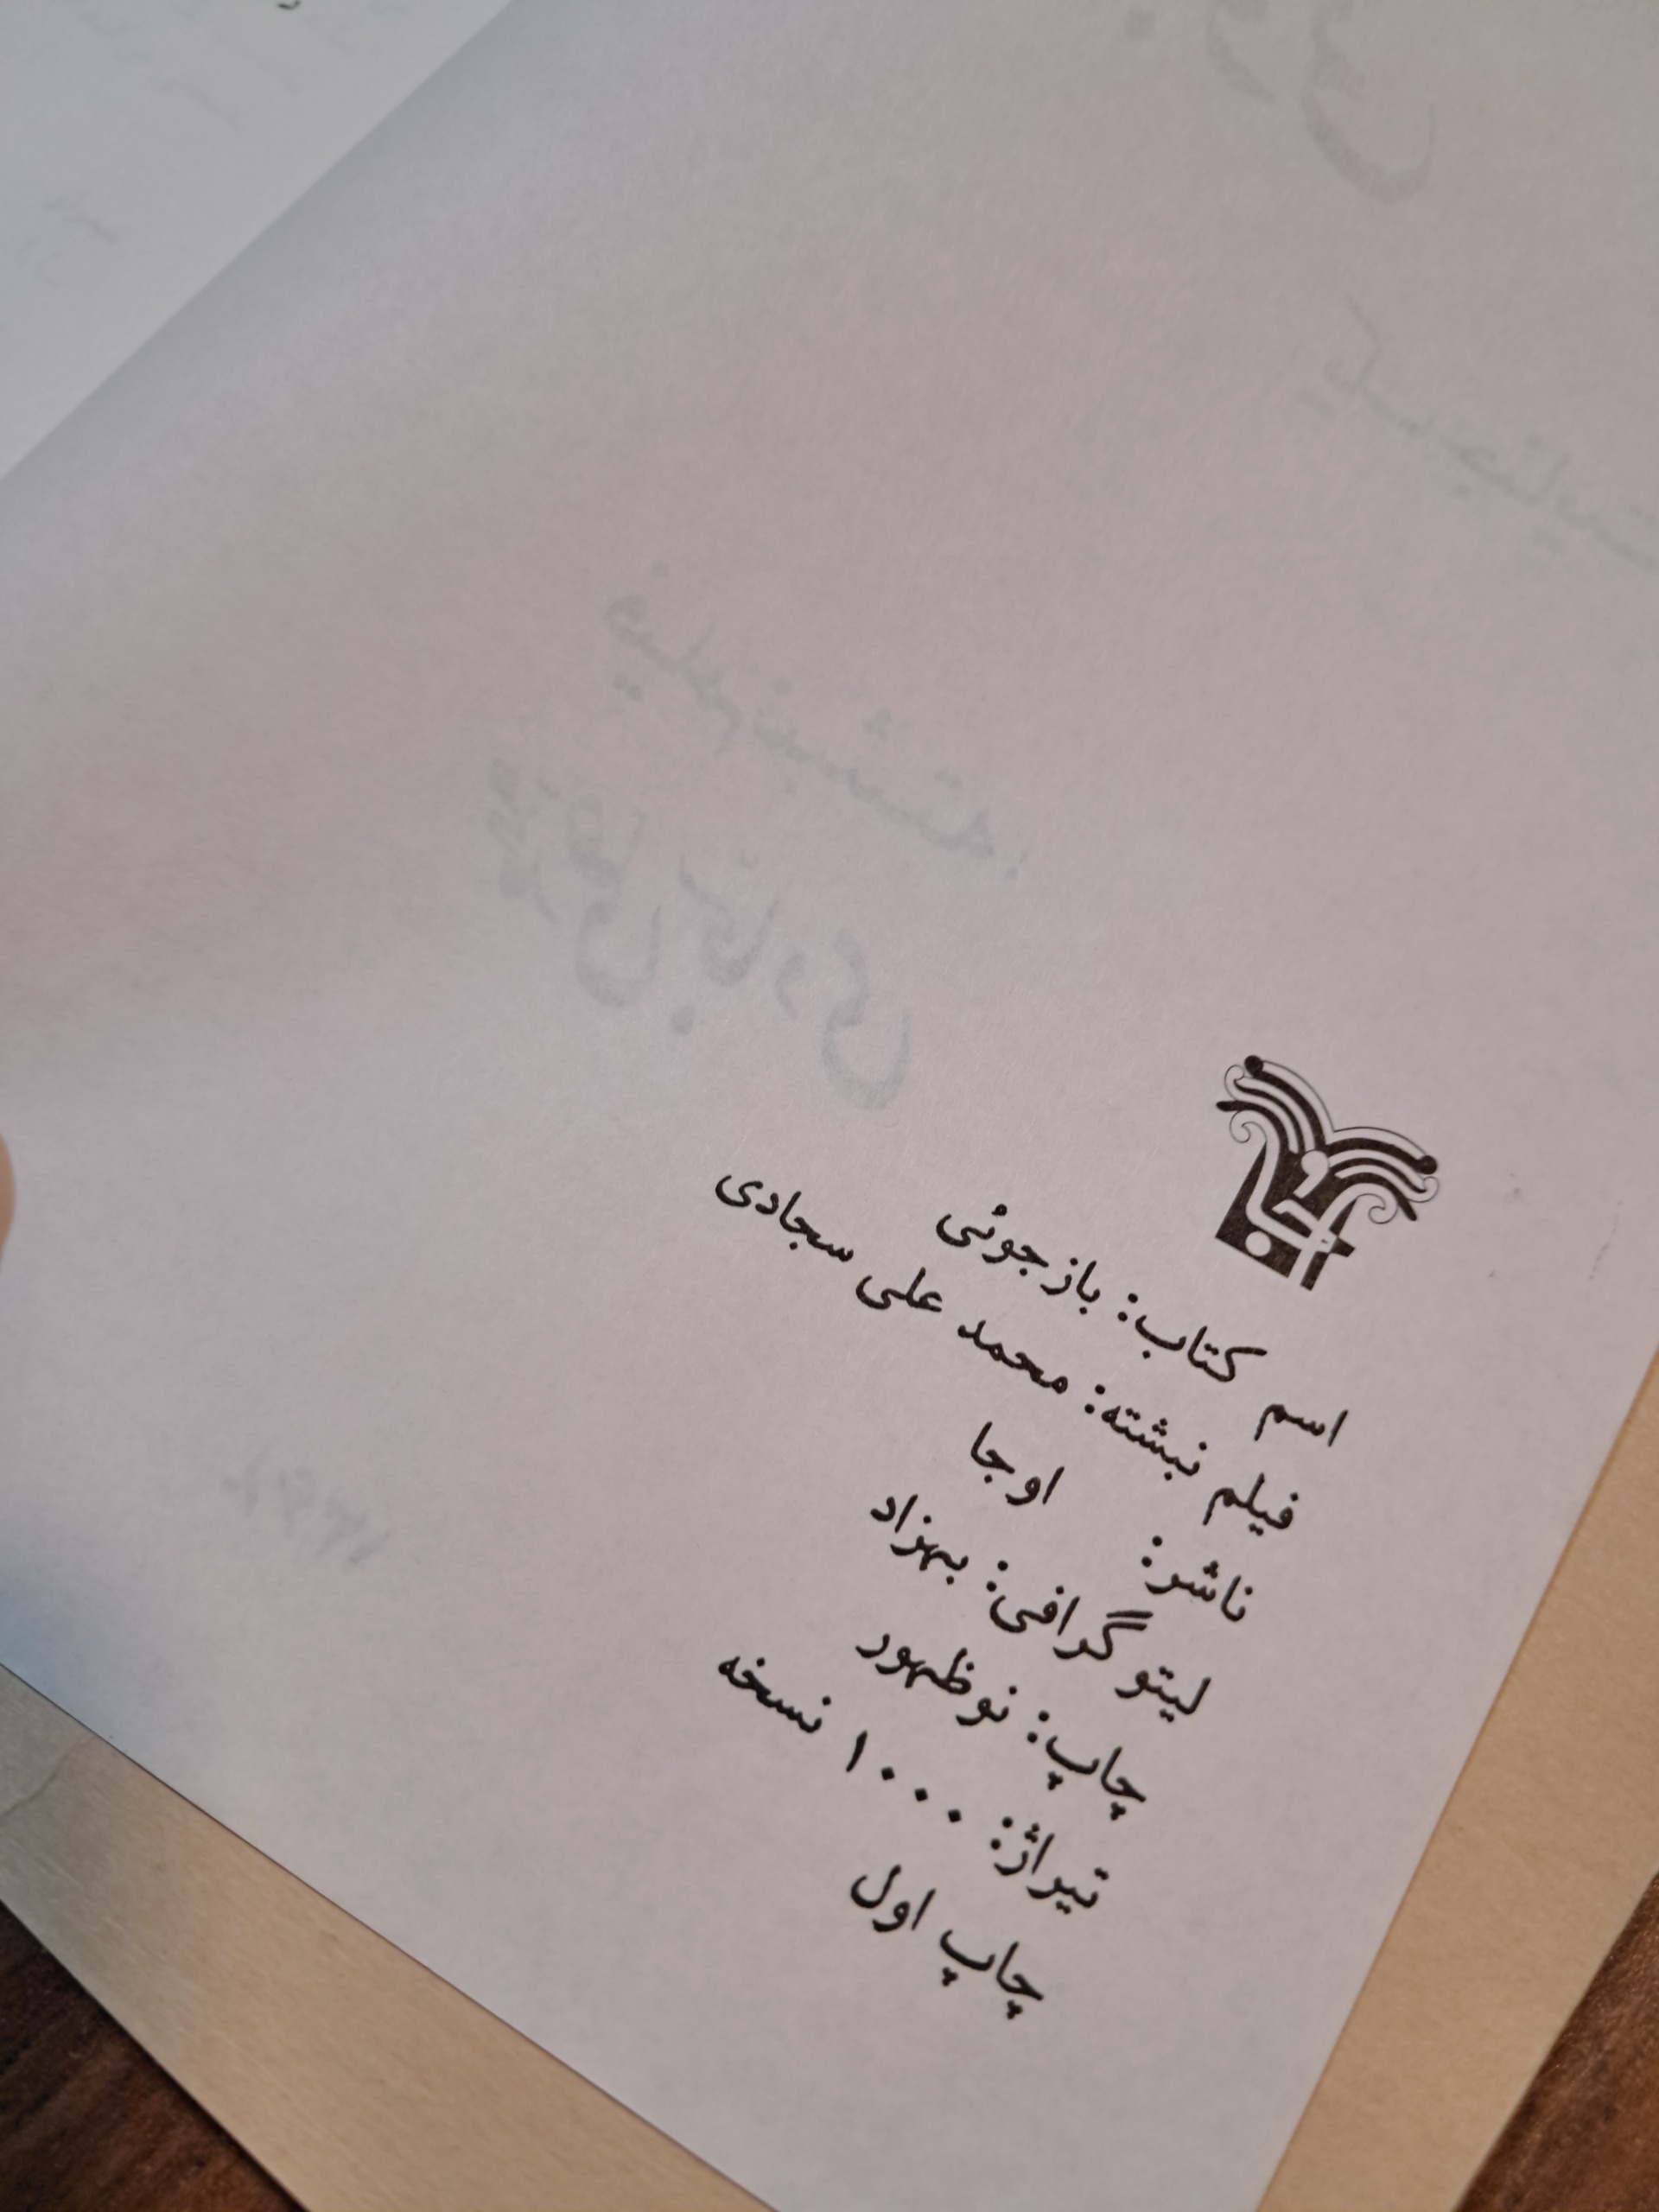 اوجا
اسم کتاب: بازجوئی
فیلم نبشته: محمد علی سجادی
ناشر: اوجا
لیتو گرافی: بهزاد
چاپ: نوظهور
تیراژ: ۱۰۰۰ نسخه
چاپ اول